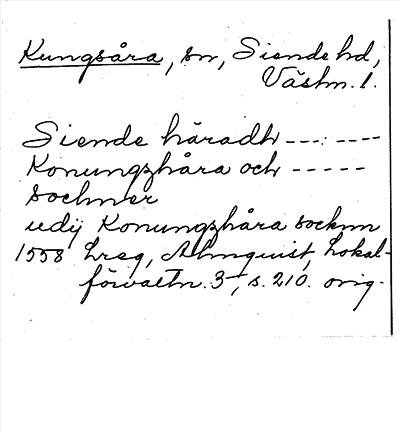 Kungsåra, sn, Siende hd,
Västm. l.
Siende häradh ---:----
Konungzhåra och -----
sochner
udij Konungzhåra socknn
1558 Lreg, Almquist, Lokal-
förvaltn. 3, s. 210. orig.